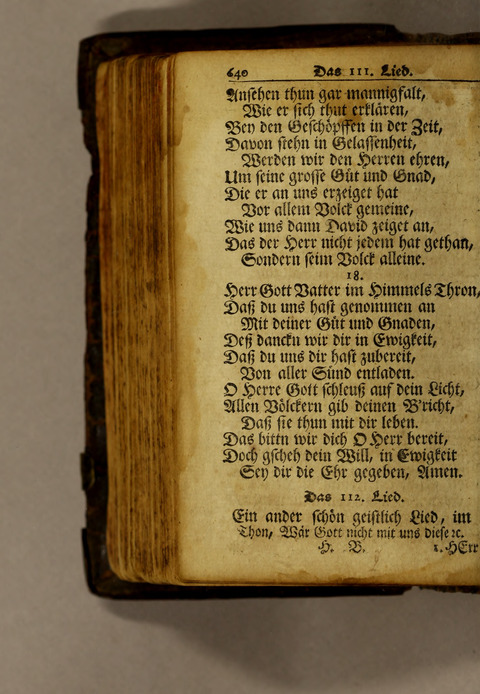 640 Das 111. Lied.
Ansehen thun gar mannigfalt,
Wie er sich thut erklären,
Bey den Geschöpffen in der Zeit,
Davon stehn in Gelassenheit,
Werden wir den Herren ehren,
Um seine grosse Güt und Gnad,
Die er an uns erzeiget hat
Vor allem Volck gemeine,
Wie uns dann David zeiget an,
Das der Herr nicht jedem hat gethan,
Sondern seim Volck alleine.
18.
Herr Gott Vatter im Himmels Thron,
Daß du uns hast genommen an
Mit deiner Güt und Gnaden,
Deß danckn wir dir in Ewigkeit,
Daß du uns dir hast zubereit,
Von aller Sünd entladen.
O Herre Gott schleuß auf dein Licht,
Allen Völckern gib deinen B'richt,
Daß sie thun mit dir leben.
Das bittn wir dich O Herr bereit,
Doch gscheh dein Will, in Ewigkeit
Sey dir die Ehr gegeben, Amen.
Das 112. Lied.
Ein ander schön geistlich Lied, im
Thon, Wär Gott nicht mit uns diese ꝛc.
H. B. 1. HErr